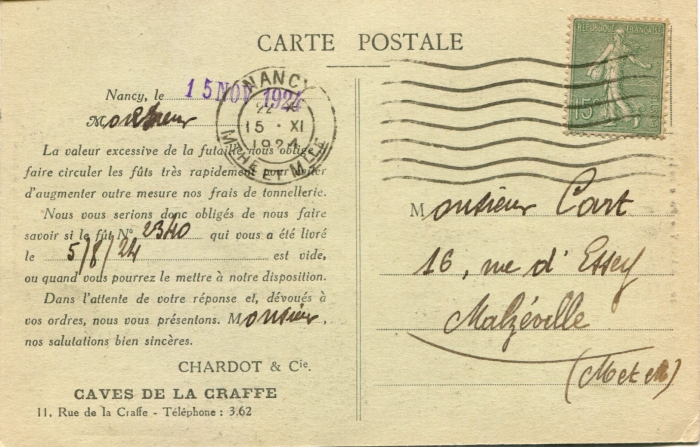 CARTE POSTALE
RÉPUBLIQUE FRANÇAISE
15c
NANCY
15 · XI
1924
MTHE ET MLLE
Nancy, le 15 NOV 1924
Monsieur
La valeur excessive de la futaille nous oblige
faire circuler les fûts très rapidement pour éviter
d'augmenter outre mesure nos frais de tonnellerie.
Nous vous serions donc obligés de nous faire
savoir si le fût N° 2340 qui vous a été livré
le 5/8/24 est vide,
ou quand vous pourrez le mettre à notre disposition.
Dans l'attente de votre réponse et, dévoués à
vos ordres, nous vous présentons. Monsieur,
nos salutations bien sincères.
CHARDOT & Cie.
CAVES DE LA CRAFFE
11, Rue de la Craffe - Téléphone : 3.62
Monsieur Cart
16, rue d'Essey
Malzéville
(Met M)